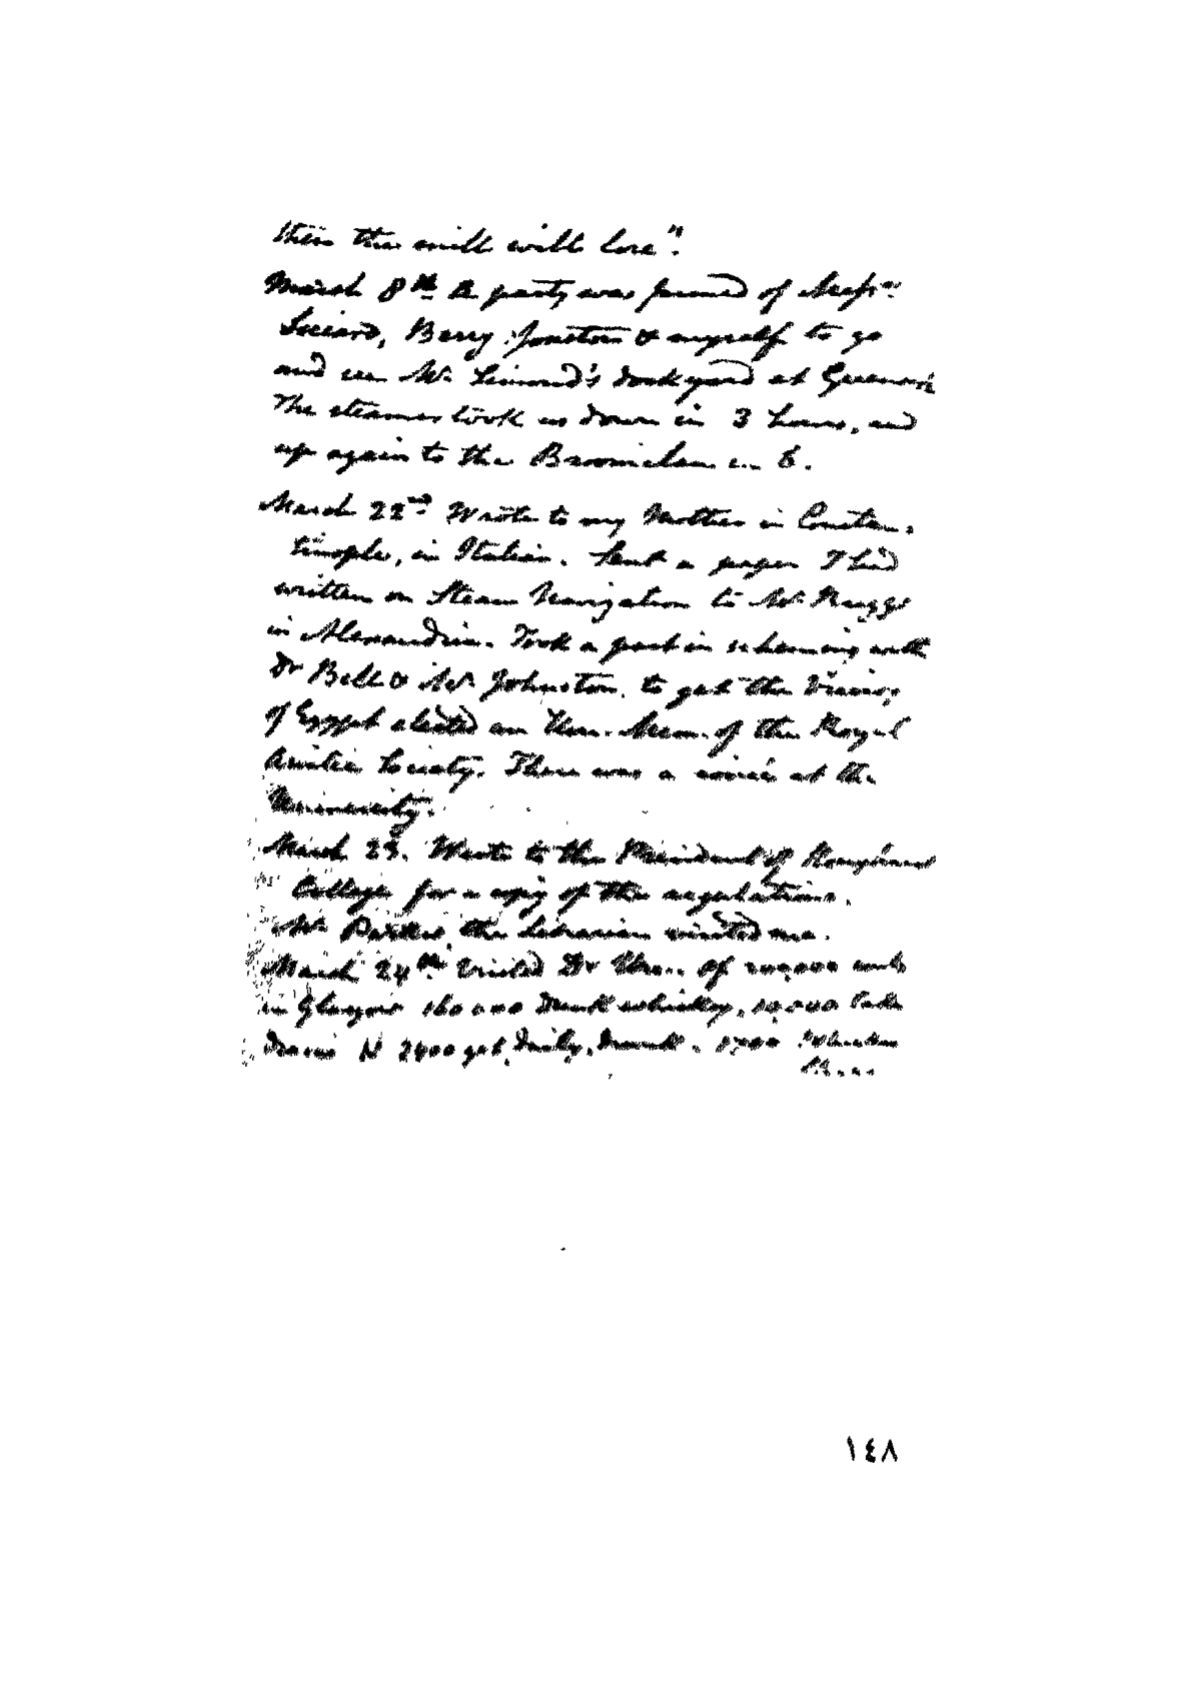 then the mill will lose".
March 8th A party was formed of Messrs
Berry, Jonston & myself to go
and see Mr. dockyard at
The steamer took us down in 3 hours, and
up again to the Broomielaw in 6.
March 22nd Wrote to my Mother in Constan-
tinople, in Italian. Sent a paper I had
written on Steam Navigation to Mr.
in Alexandria. Took a part in scheming with
Dr Bell & Mr. Johnston, to get the Viceroy
of Egypt elected an Hon. Mem. of the Royal
Asiatic Society. There was a soirée at the
University.
March 23. Wrote to the President of
College for a copy of the regulations.
Mr the Librarian visited me.
March 24th Visited Dr Ure. Of souls
in Glasgow 160 000 drink whiskey, 10,000 take
get daily, drunk.
١٤٨